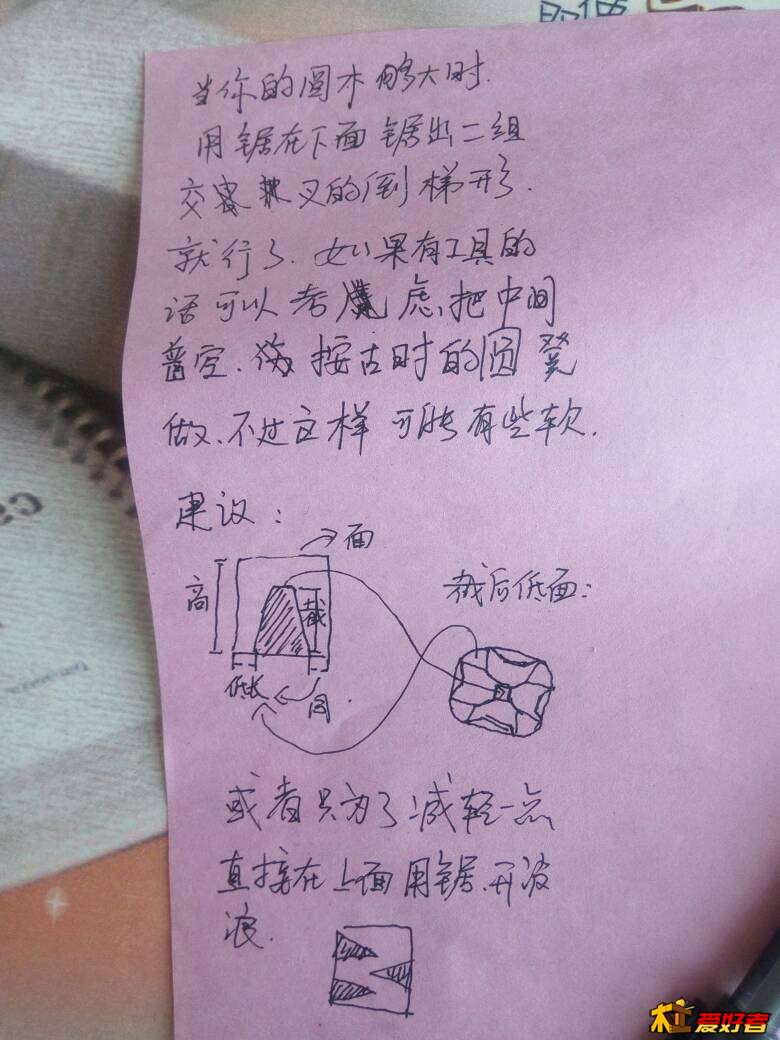 当你的圆木够大时.
用锯在下面锯出二组
交叉的倒梯形.
就行了.如果有工具的
话可以考虑,把中间
空.按古时的圆凳
做,不过这样可能有些软.
建议:
面
高
截
截后低面:
低长
同.
或者只为了减轻一点
直接在上面用锯.开波
浪.
木工爱好者